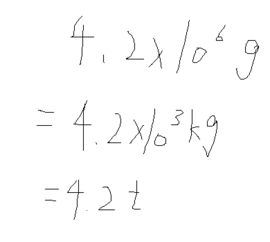 4.2×10⁶ g
=4.2×10³kg
=4.2t